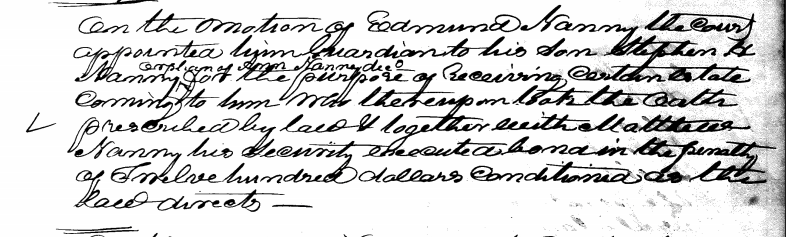 On the motion of Edmund Nanny the Court
appointed him Guardian to his son Stephen B
orphan of Ann Nanny decd
Nanny for the purpose of receiving certain estate
coming to him Who thereupon took the oath
prescribed by law & together with Matthew
Nanny his security executed bond in the penalty
of Twelve hundred dollars conditioned as the
law directs —